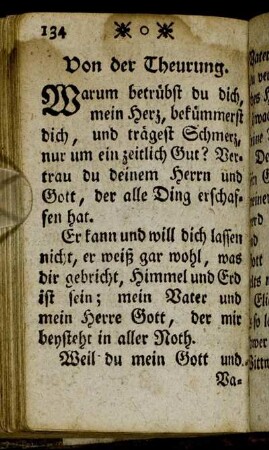 134 * o *
Von der Theurung.
Warum betrübst du dich,
mein Herz, bekümmerst
dich, und trägest Schmerz,
nur um ein zeitlich Gut? Ver-
trau du deinem Herrn und
Gott, der alle Ding erschaf-
fen hat.
Er kann und will dich lassen
nicht, er weiß gar wohl, was
dir gebricht, Himmel und Erd
ist sein; mein Vater und
mein Herre Gott, der mir
beysteht in aller Noth.
Weil du mein Gott und
Va-